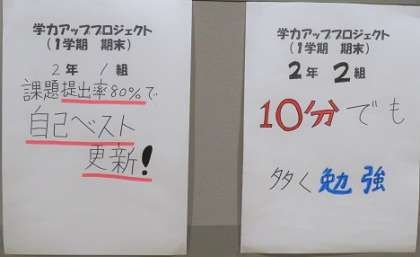 学力アッププロジェクト
(1学期 期末)
2年 1組
課題提出率80%で
自己ベスト
更新!
学力アッププロジェクト
(1学期 期末)
2年 2組
10分でも
多く勉強